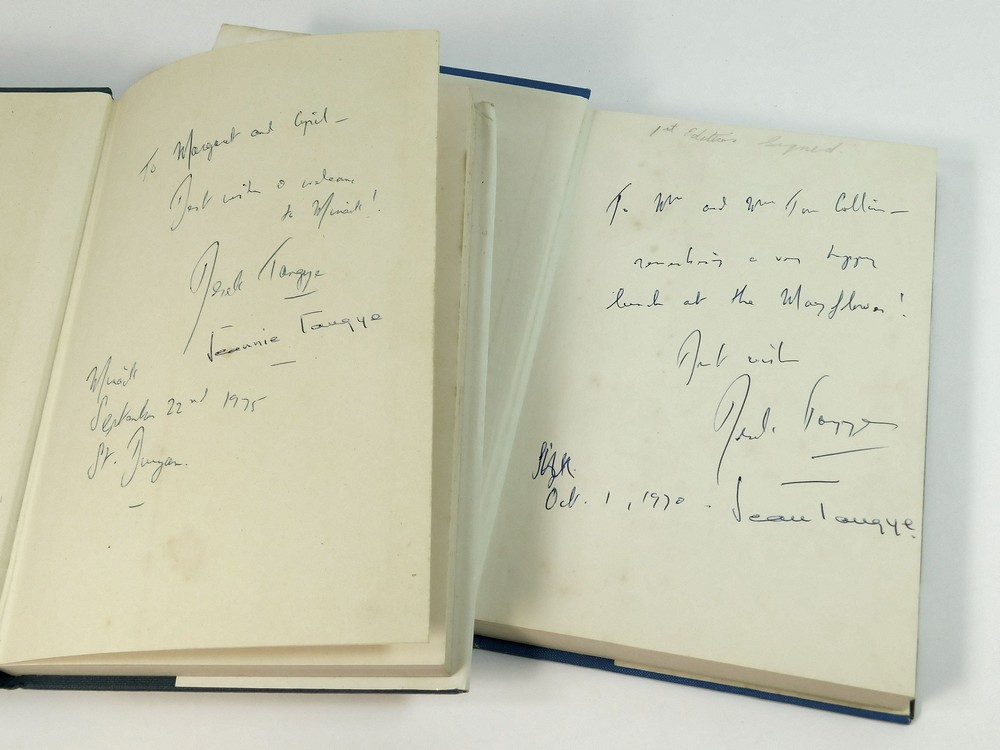 To Margaret and April —
Best wishes & welcome
to Minack!
Derek Tangye
Jeannie Tangye
Minack
September 22nd 1975
St. Buryan.
1st Edition Signed
To Mr and Mrs Tom Collins —
remembering a very happy
lunch at the Mayflower!
Best wishes
Derek Tangye
Oct. 1, 1970 .
Jean Tangye